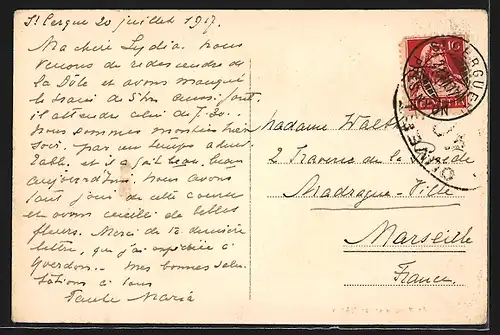 St Cergue 20 juillet 1917.
Ma chère Lydia. Nous
venons de redescendre de
la Dôle et avons manqué
le train de 5 h aussi faut
il attendre celui de 7.50.
Nous sommes montées hier
soir par un temps
et il a fait beau, beau
aujourd'hui. Nous avons
tant joui de cette course
et avons cueilli de belles
fleurs. Merci de ta dernière
lettre, que j'ai à
Yverdon. Mes bonnes salu-
tations à tous
Tante Maria
Madame Walt
2 Traverse de la
Madrague-Ville
Marseille
France.
10
HELVETIA
ST CERGUE